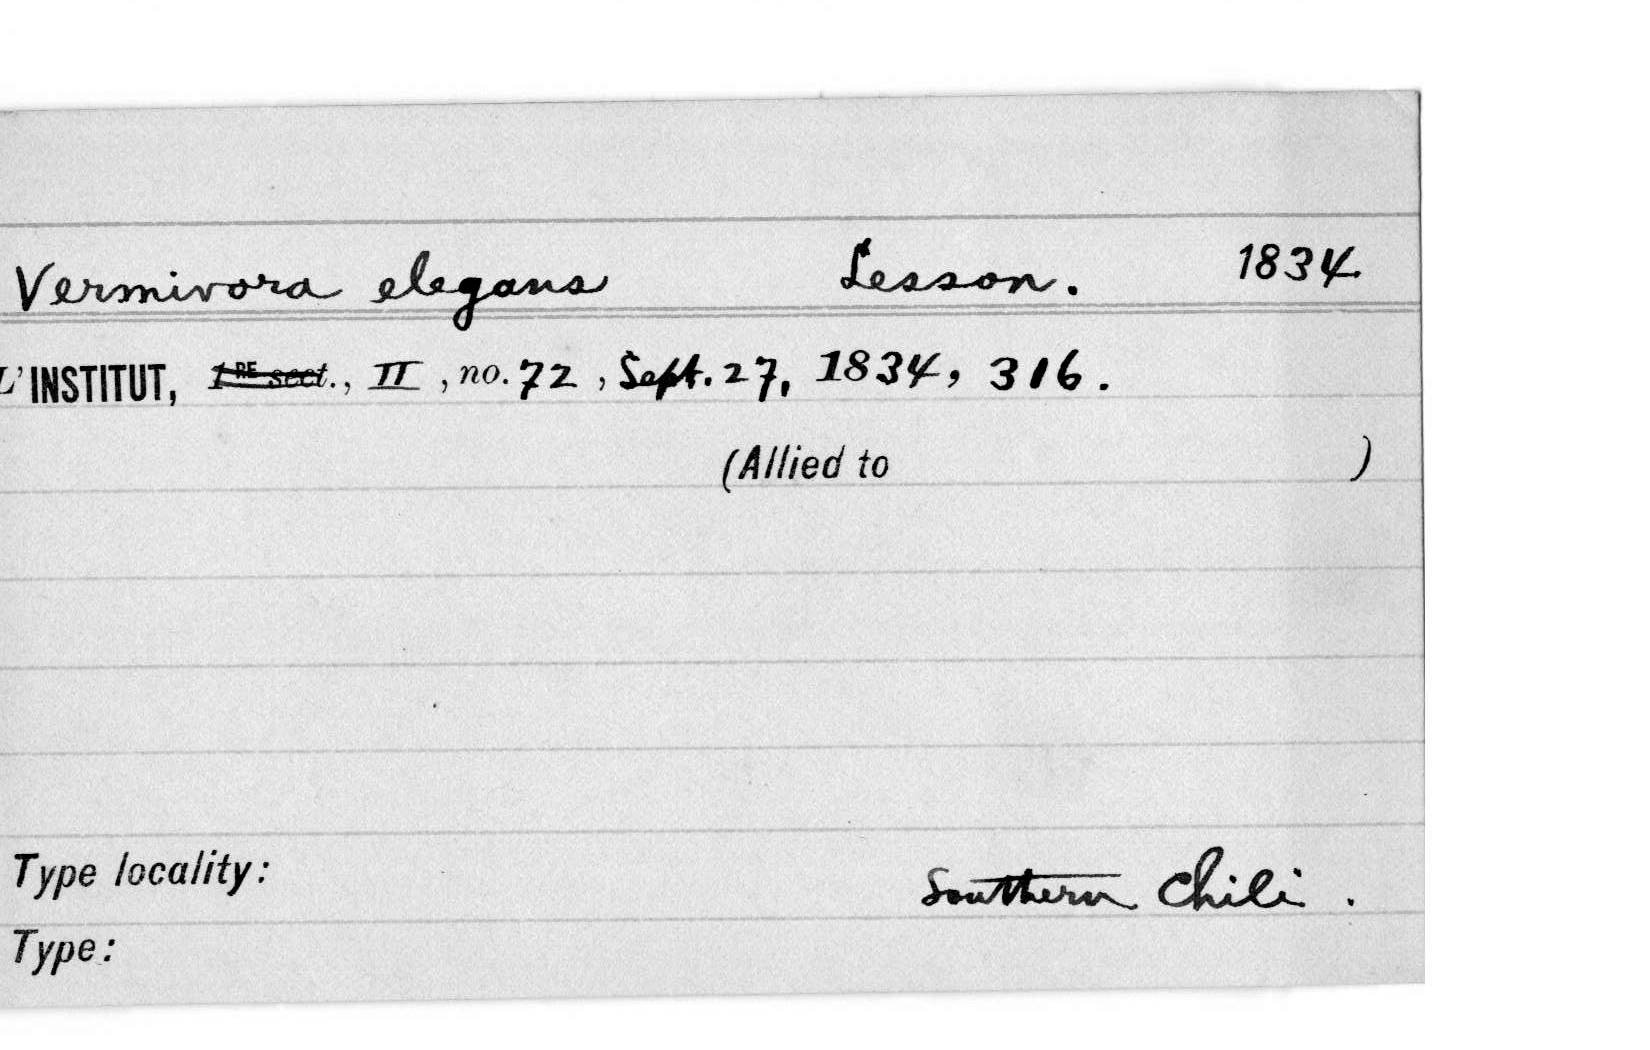 Vermivora elegans Lesson. 1834.
L'INSTITUT, 1RE sect., II, no. 72, Sept. 27, 1834, 316.
(Allied to )
Type locality: Southern Chili.
Type: